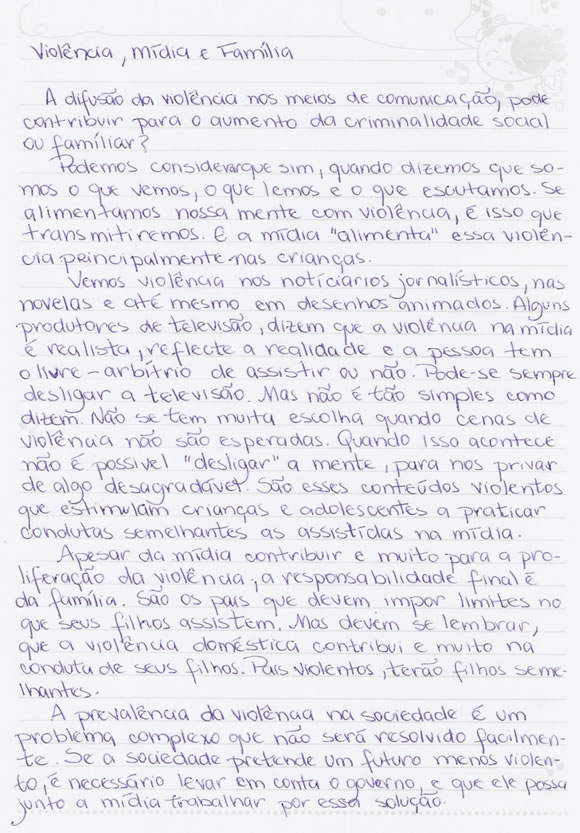 Violência, mídia e Família
A difusão da violência nos meios de comunicação, pode
contribuir para o aumento da criminalidade social
ou famíliar?
Podemos considerarque sim, quando dizemos que so-
mos o que vemos, o que lemos e o que escutamos. Se
alimentamos nossa mente com violência, é isso que
transmitiremos. E a mídia "alimenta" essa violên-
cia peincipalmente nas crianças.
Vemos violência nos notíciarios jornalísticos, nas
novelas e até mesmo em desenhos animados. Alguns
produtores de televisão, dizem que a violência na mídia
é realista, reflecte a realidade e a pessoa tem
o livre-arbítrio de assistir ou não. Pode-se sempre
desligar a televisão. Mas não é tão simples como
dizem. Não se tem muita escolha quando cenas de
violência não são esperadas. Quando isso acontece
não é possivel "desligar" a mente, para nos privar
de algo desagradável. São esses conteúdos violentos
que estimulam crianças e adolescentes a praticar
condutas semelhantes as assistídas na mídia.
Apesar da mídia contribuir e muito para a pro-
liferação da violência, a responsabilidade final é
da família. São os pais que devem impor limites no
que seus filhos assistem. Mas devem se lembrar,
que a violência doméstica contribui e muito na
conduta de seus filhos. Pais violentos, terão filhos seme-
lhantes.
A prevalência da violência na sociedade é um
problema complexo que não será resolvido facilmen-
te. Se a sociedade pretende um futuro menos violen-
to, é necessário levar em conta o governo, e que ele possa
junto a mídia trabalhar por essa solução.